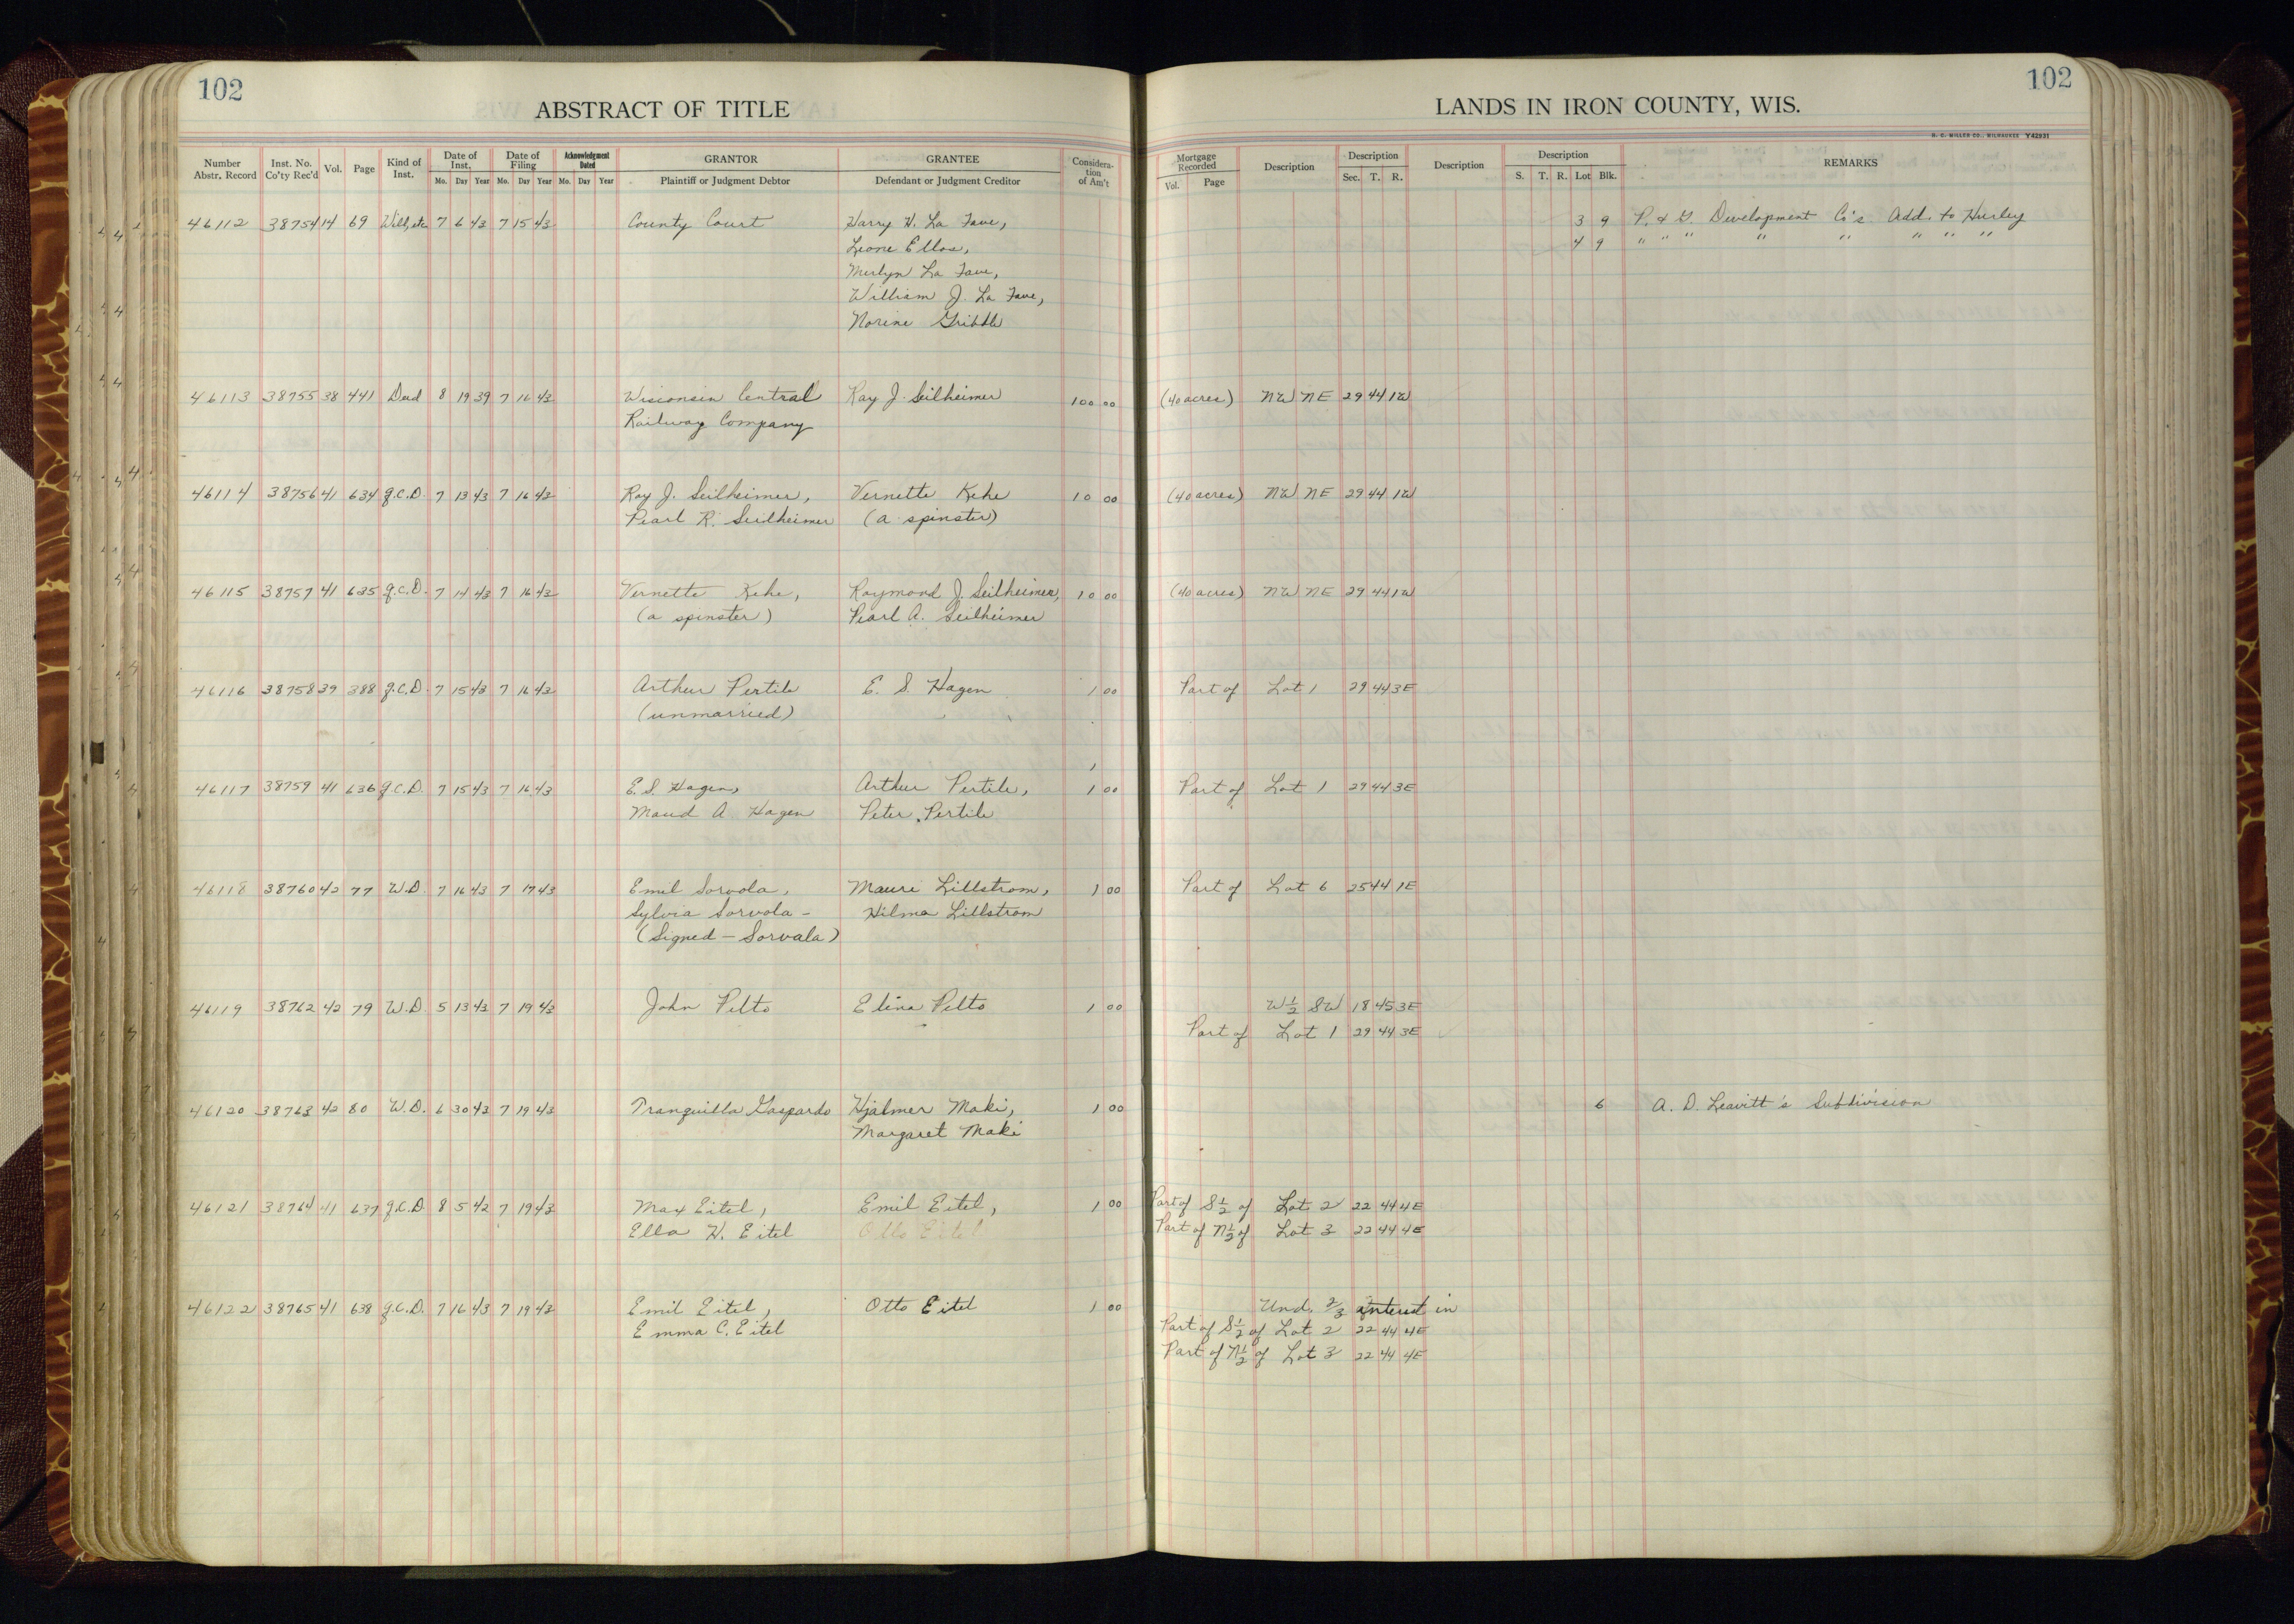 102
ABSTRACT OF TITLE
Number Abstr. Record Inst. No. Co'ty Rec'd Vol. Page Kind of Inst. Date of Inst. Mo. Day Year Date of Filing Mo. Day Year Acknowledgment Dated Mo. Day Year GRANTOR Plaintiff or Judgment Debtor GRANTEE Defendant or Judgment Creditor Considera-tion of Am't
46112 38754 14 69 Will, etc 7 6 43 7 15 43 County Court Harry H. La Fave,
Leone Ellos,
Merlyn La Fave,
William J. La Fave,
Norine Gribble
46113 38755 38 441 Deed 8 19 39 7 16 43 Wisconsin Central Ray J. Seilheimer 100 00
Railway Company
46114 38756 41 634 Q.C.D. 7 13 43 7 16 43 Ray J. Seilheimer, Vernette Kehe 10 00
Pearl R. Seilheimer (a spinster)
46115 38757 41 635 Q.C.D. 7 14 43 7 16 43 Vernette Kehe, Raymond J. Seilheimer, 10 00
(a spinster) Pearl A. Seilheimer
46116 38758 39 388 Q.C.D. 7 15 43 7 16 43 Arthur Pertile E. S. Hagen 1 00
(unmarried)
46117 38759 41 636 Q.C.D. 7 15 43 7 16 43 E. S. Hagen, Arthur Pertile, 1 00
Maud A. Hagen Peter Pertile
46118 38760 42 77 W.D. 7 16 43 7 17 43 Emil Sorvola, Mauri Lillstrom, 1 00
Sylvia Sorvola - Hilma Lillstrom
(Signed - Sorvala)
46119 38762 42 79 W.D. 5 13 43 7 19 43 John Pelto Elina Pelto 1 00
46120 38763 42 80 W.D. 6 30 43 7 19 43 Tranquilla Gaspardo Hjalmer Maki, 1 00
Margaret Maki
46121 38764 41 637 Q.C.D. 8 5 42 7 19 43 Max Eitel, Emil Eitel, 1 00
Ella W. Eitel Otto Eitel
46122 38765 41 638 Q.C.D. 7 16 43 7 19 43 Emil Eitel, Otto Eitel 1 00
Emma C. Eitel
102
LANDS IN IRON COUNTY, WIS.
H. C. MILLER CO., MILWAUKEE Y42931
Mortgage Recorded Vol. Page Description Description Sec. T. R. Description Description S. T. R. Lot Blk. REMARKS
3 9 P. & G. Development Co's. Add. to Hurley
4 9 " " " " " " " "
(40 acres) NW NE 29 44 1W
(40 acres) NW NE 29 44 1W
(40 acres) NW NE 29 44 1W
Part of Lot 1 29 44 3E
Part of Lot 1 29 44 3E
Part of Lot 6 25 44 1E
W½ SW 18 45 3E
Part of Lot 1 29 44 3E
6 A. D. Leavitt's Subdivision
Part of S½ of Lot 2 22 44 4E
Part of N½ of Lot 3 22 44 4E
Und. 2/3 interest in
Part of S½ of Lot 2 22 44 4E
Part of N½ of Lot 3 22 44 4E